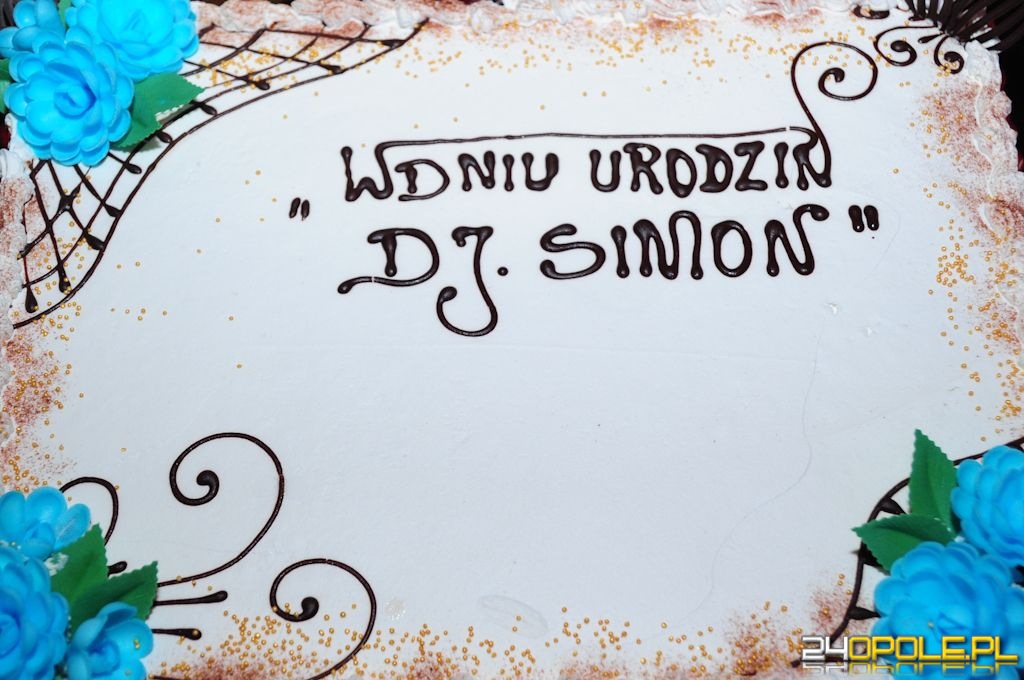 W DNIU URODZIN
" DJ. SIMON "
24OPOLE.PL